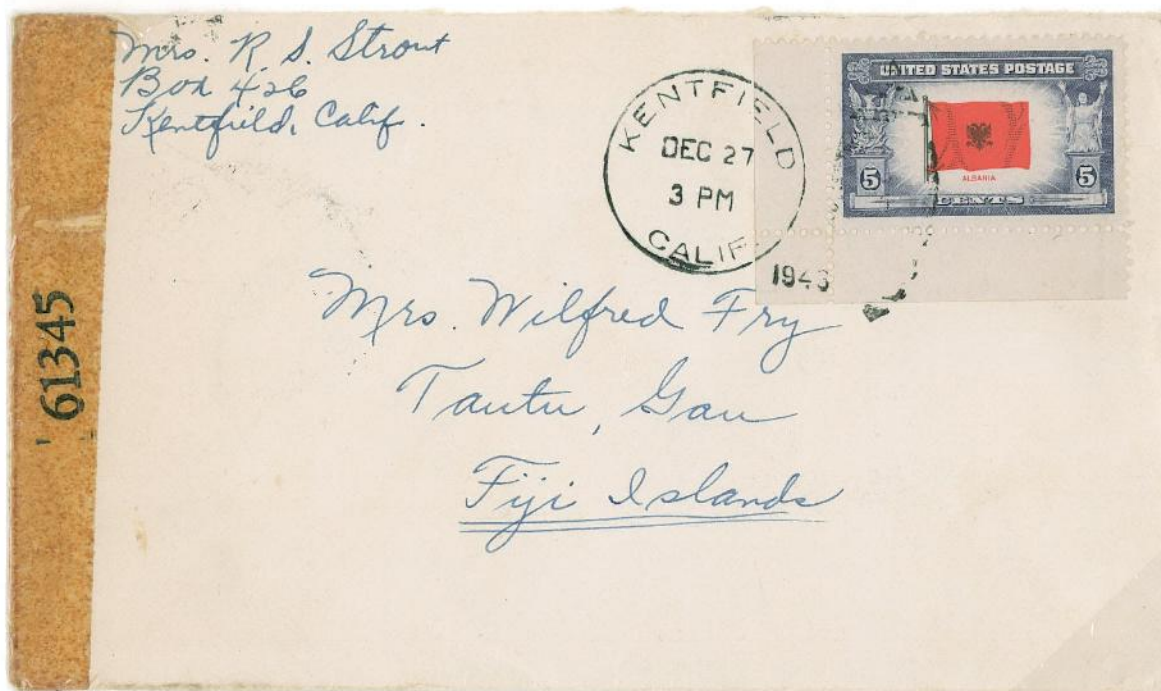 Mrs. R. S. Strout
Box 426
Kentfield, Calif.
KENTFIELD
DEC 27
3 PM
CALIF.
1943
UNITED STATES POSTAGE
ALBANIA
5 5
CENTS
61345
Mrs. Wilfred Fry
Tautu, Gau
Fiji Islands